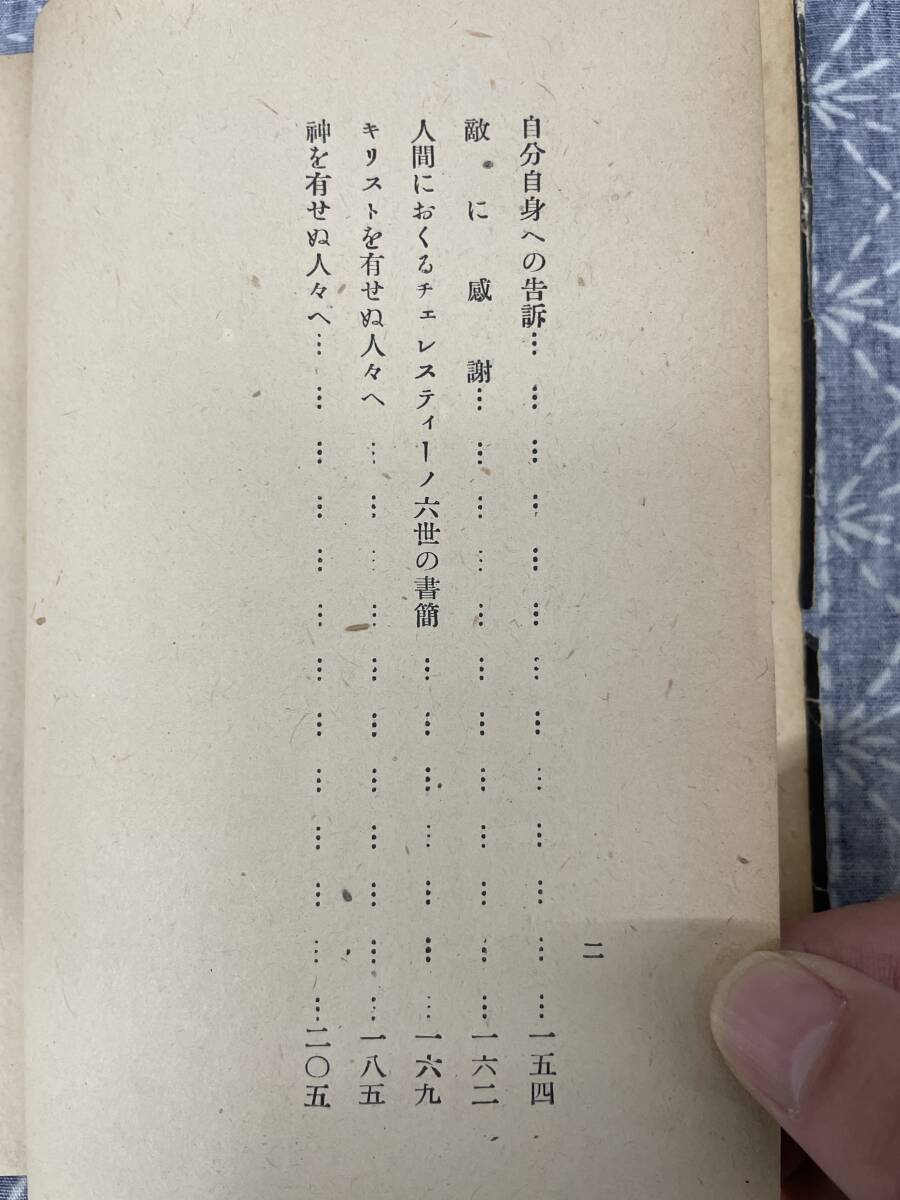 二
自分自身への告訴……………………………………一五四
敵に感謝……………………………………一六二
人間におくるチェレスティーノ六世の書簡……………………一六九
キリストを有せぬ人々へ……………………………………一八五
神を有せぬ人々へ……………………………………二〇五